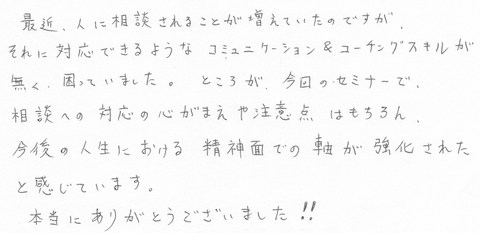 最近、人に相談されることが増えていたのですが、
それに対応できるような コミュニケーション&コーチングスキルが
無く、困っていました。 ところが、今回のセミナーで、
相談への対応の心がまえや注意点 はもちろん、
今後の人生における 精神面での軸が強化された
と感じています。
本当にありがとうございました!!